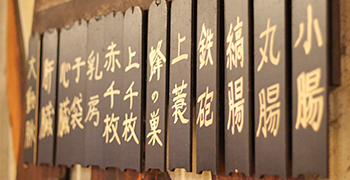 小腸
丸腸
縞腸
鉄砲
上蓑
蜂の巣
上千枚
赤千枚
乳房
子袋
心臓
肝臓
大動脈